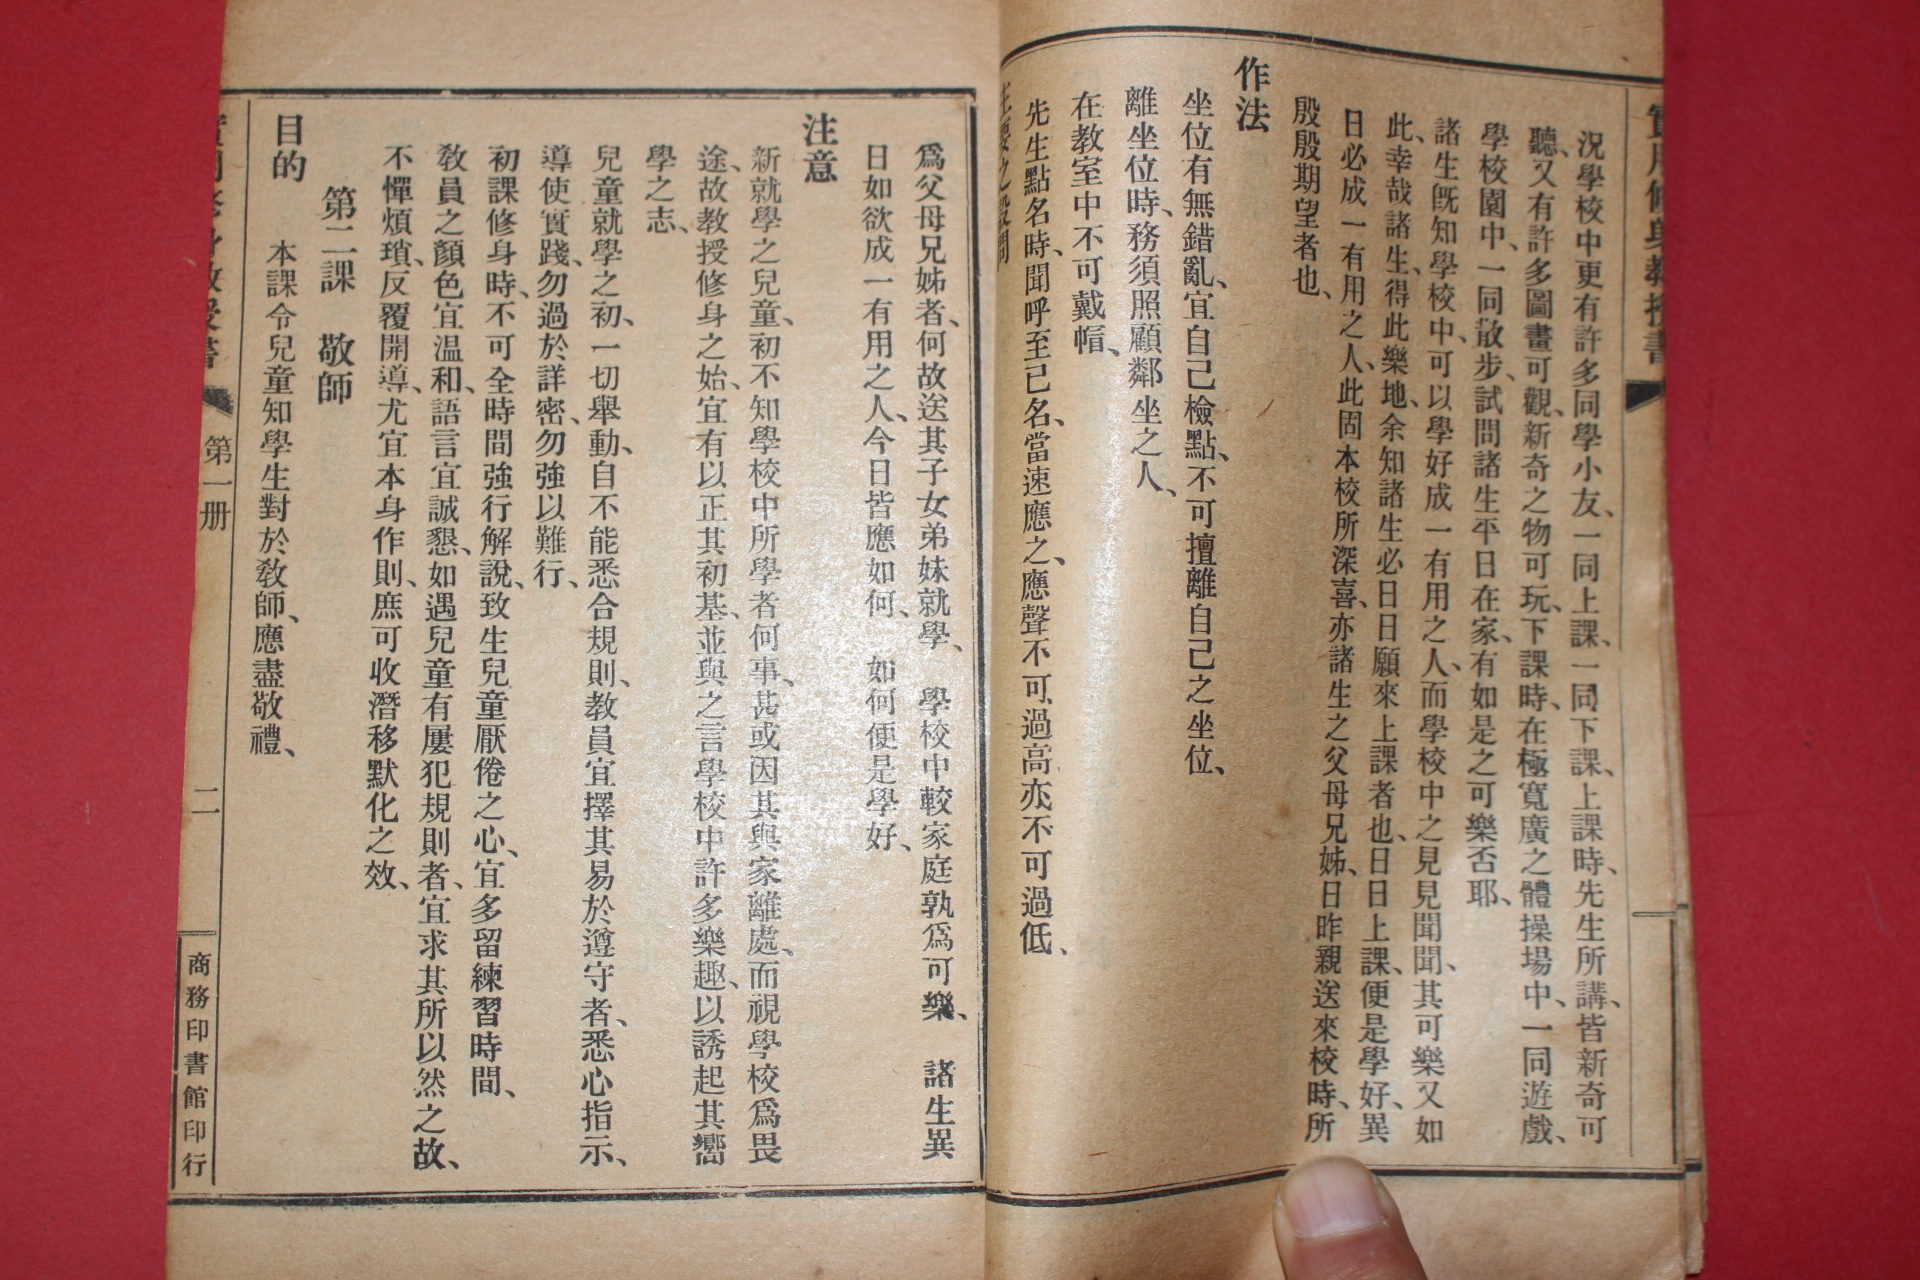 實用修身教授書
況學校中更有許多同學小友、一同上課、一同下課、上課時、先生所講、皆新奇可
聽、又有許多圖畫可觀、新奇之物可玩、下課時、在極寬廣之體操場中、一同遊戲、
學校園中、一同散步、試問諸生平日在家、有如是之可樂否耶、
諸生旣知學校中、可以學好成一有用之人、而學校中之見見聞聞、其可樂又如
此、幸哉諸生、得此樂地、余知諸生必日日願來上課者也、日日上課、便是學好、異
日必成一有用之人、此固本校所深喜、亦諸生之父母兄姊、日昨親送來校時、所
殷殷期望者也、
作法
坐位有無錯亂、宜自己檢點、不可擅離自己之坐位、
離坐位時、務須照顧鄰坐之人、
在教室中不可戴帽、
先生點名時、聞呼至已名、當速應之、應聲不可過高、亦不可過低、
主要之設問
爲父母兄姊者、何故送其子女弟妹就學、　學校中較家庭孰爲可樂、　諸生異
日如欲成一有用之人、今日皆應如何、　如何便是學好、
注意
新就學之兒童、初不知學校中所學者何事、甚或因其與家離處、而視學校爲畏
途、故教授修身之始、宜有以正其初基、並與之言學校中許多樂趣、以誘起其嚮
學之志、
兒童就學之初、一切舉動、自不能悉合規則、教員宜擇其易於遵守者、悉心指示、
導使實踐、勿過於詳密、勿強以難行、
初課修身時、不可全時間強行解說、致生兒童厭倦之心、宜多留練習時間、
敎員之顏色宜溫和、語言宜誠懇、如遇兒童有屢犯規則者、宜求其所以然之故、
不憚煩瑣、反覆開導、尤宜本身作則、庶可收潛移默化之效、
第二課　敬師
目的　本課令兒童知學生對於敎師、應盡敬禮、
實用修身教授書　第一册　二　商務印書館印行